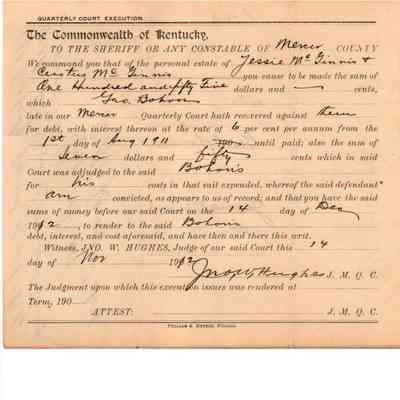 QUARTERLY COURT EXECUTION.
The Commonwealth of Kentucky,
TO THE SHERIFF OR ANY CONSTABLE OF Mercer COUNTY
We command you that of the personal estate of Jessie McGinnis &
Curtis McGinnis you cause to be made the sum of
One Hundred and fifty Five dollars and — cents,
which Geo. Bohon
late in our Mercer Quarterly Court hath recovered against them
for debt, with interest thereon at the rate of 6 per cent per annum from the
1st day of Aug 1911 until paid; also the sum of
Seven dollars and fifty cents which in said
Court was adjudged to the said Bohons
for his costs in that suit expended, whereof the said defendants
are convicted, as appears to us of record; and that you have the said
sums of money before our said Court on the 14 day of Dec
1912, to render to the said Bohons
debt, interest, and cost aforesaid, and have then and there this writ.
Witness, JNO. W. HUGHES, Judge of our said Court this 14
day of Nov 1912
Jno W Hughes J. M. Q. C.
The Judgment upon which this execution issues was rendered at
Term, 190
ATTEST: J. M. Q. C.